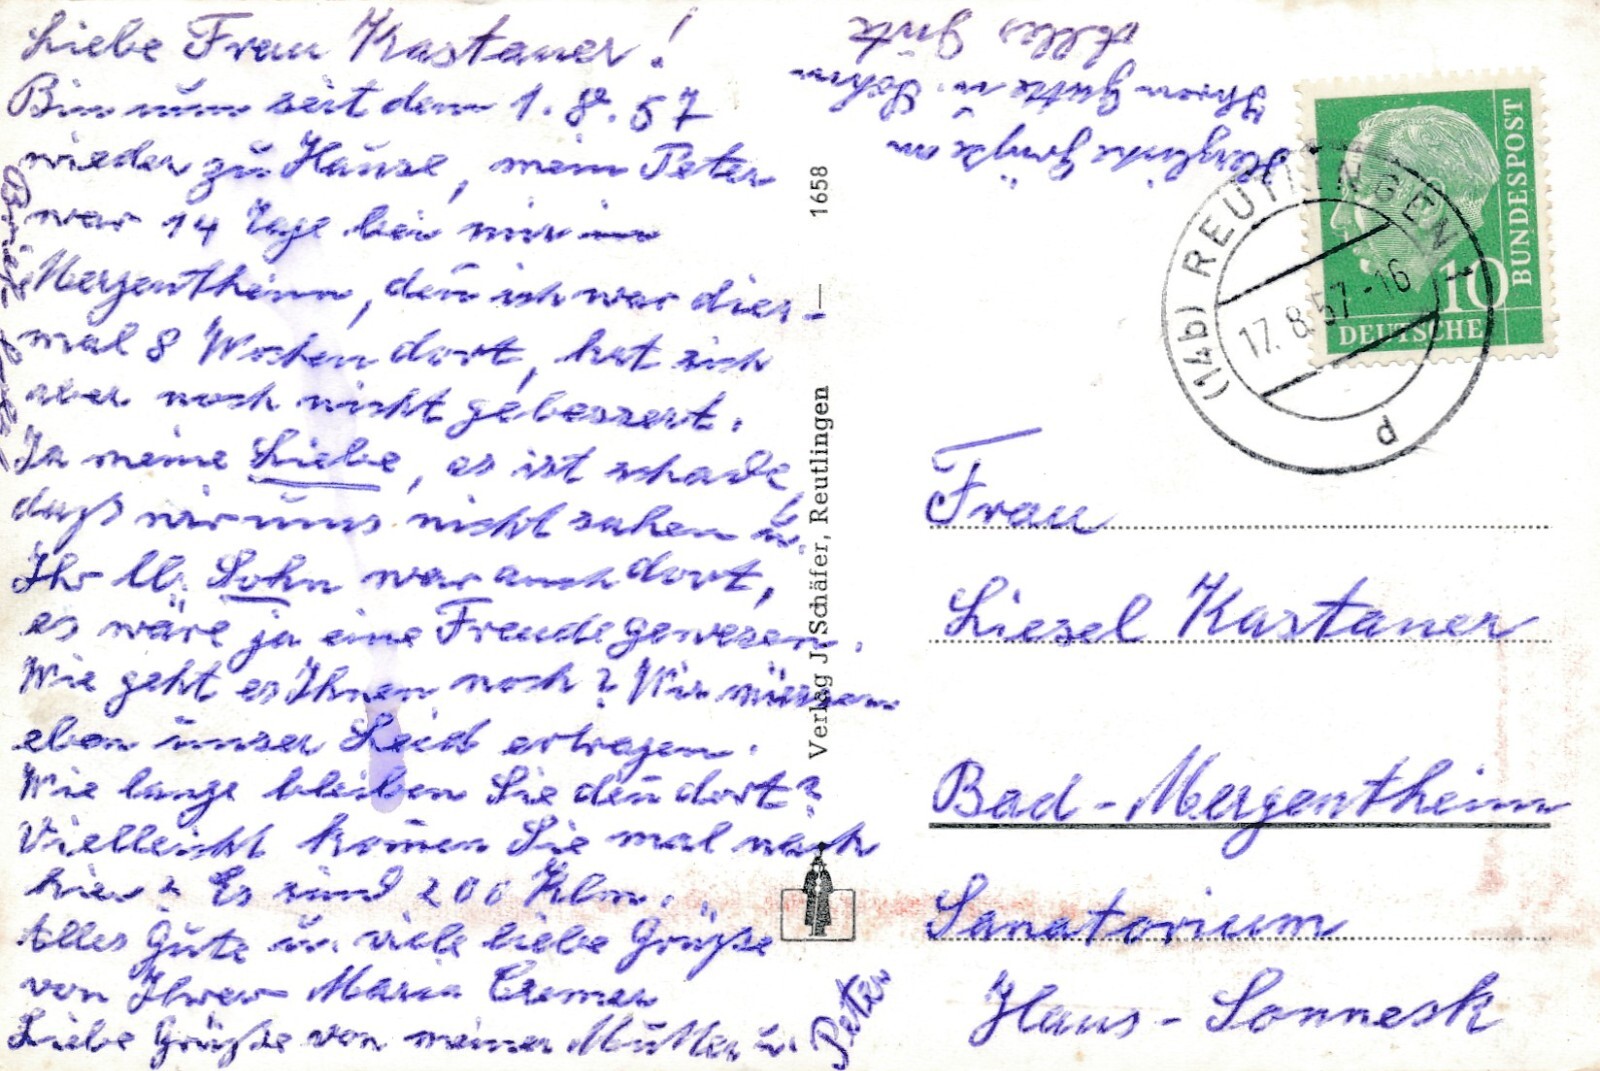 Liebe Frau Kastaner!
Bin nun seit dem 1.8.57
wieder zu Hause, mein Peter
war 14 Tage bei mir in
Mergentheim, den ich war dies-
mal 8 Wochen dort, hat sich
aber noch nicht gebessert.
Ja meine Liebe, es ist schade,
daß wir uns nicht sahen u.
Ihr lb. Sohn war auch dort,
es wäre ja eine Freude gewesen.
Wie geht es Ihnen noch? Wir müssen
eben unser Leid ertragen.
Wie lange bleiben Sie den dort?
Vielleicht komen Sie mal nach
hier? Es sind 200 Klm.
Alles Gute u. viele liebe Grüße
von Ihrer Maria Cremer
Liebe Grüße von meiner Mutter u. Peter
Herzliche Grüße an
Ihrem Gatte u. Sohn
Alles Gute
1658
Verlag J. Schäfer, Reutlingen
DEUTSCHE BUNDESPOST
10
(14b) REUTLINGEN 1
17.8.57-16
d
Frau
Liesel Kastaner
Bad-Mergentheim
Sanatorium
Haus-Sonneck